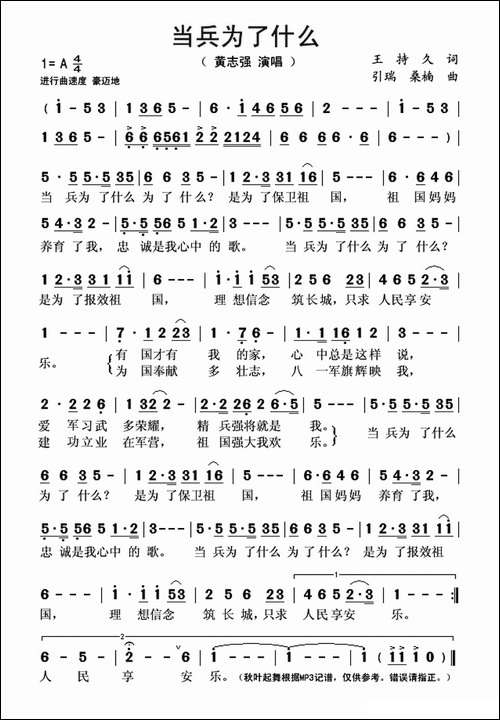 当兵为了什么
1= A 4/4 （ 黄志强 演唱 ） 王 持 久 词
进行曲速度 豪迈地 引瑞 桑楠 曲
( i - 5 3 | 1 3 6 5 - | 6 · i 4 6 5 6 | 2 - i - |
1 3 6 5 - | 6 6 6561 2 2 2124 | 6 6 6 6 · 6 | 5 - - - ) |
5 · 5 5·5 35 | 6 6 3 5 - | 1 2·3 31 16 | 5 - - - | 6 · 6 4 6 |
当 兵为 了什么 为 了 什么？ 是为 了保卫祖 国， 祖 国妈妈
5 4·3 2 - | 5·5 56 5 1·2 | 3 - - - | 5·5 5·5 35 | 6 6 3 5 - |
养育 了我， 忠 诚是我心中 的 歌。 当 兵为 了什么 为 了 什么？
1 2·3 31 11 | 6 - - - | i · i i i 53 | 1 2 3 5 6 23 | 4 6 5 2·3 |
是为 了报效祖 国， 理 想信念 筑长城，只求 人民享安
1 - - - | 7 · 1 2 23 | 1 · 7 6 - | 1 · 1 1 16 1 2 | 3 - - - |
乐。 有 国才有 我 的家， 心 中总是这样 说，
为 国奉献 多 壮志， 八 一军旗辉映 我，
3 · 2 2 6 | 1 32 2 - | 2 · 2 26 2 6·5 | 5 - - - | 5·5 5·5 35 |
爱 军习武 多荣耀， 精 兵强将就是 我。 当 兵为 了什么
建 功立业 在军营， 祖 国强大我欢 乐。
6 6 3 5 - | 1 2·3 31 16 | 5 - - - | 6 · 6 4 6 | 5 4·3 2 - |
为 了 什么？ 是为 了保卫祖 国， 祖 国妈妈 养育 了我，
5·5 56 5 1·2 | 3 - - - | 5·5 5·5 35 | 6 6 3 5 - | 1 2·3 31 11 |
忠 诚是我心中 的 歌。 当 兵为 了什么 为 了 什么？ 是为 了报效祖
6 - - - | i · i i i 53 | 2 5 6 23 | 4 6 5 2·3 | 1 - - - :|
国， 理 想信念 筑长城，只求 人民享安 乐。
6 - - 5 | 6 - 2 - | i - - - | i - - - | i (i i i i 0 ) ‖
人 民 享 安 乐。（秋叶起舞根据MP3记谱，仅供参考。错误请指正。）